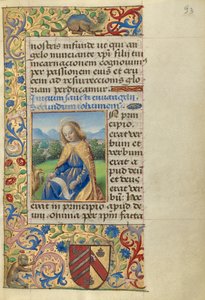 93
nostris infunde ut qui an
gelo nunciante xpi filii tui
incarnationem cognouim9
per passionem eius et cru
cem ad resurrectionis glo
riam perducamur.
Initium sancti euuangelii
secundum iohannem
In prin
cipio
erat ver
bum et
verbum
erat a
pud deū
et deus
erat ver
bum. hoc
erat in principio apud de
um. omnia per ipm facta